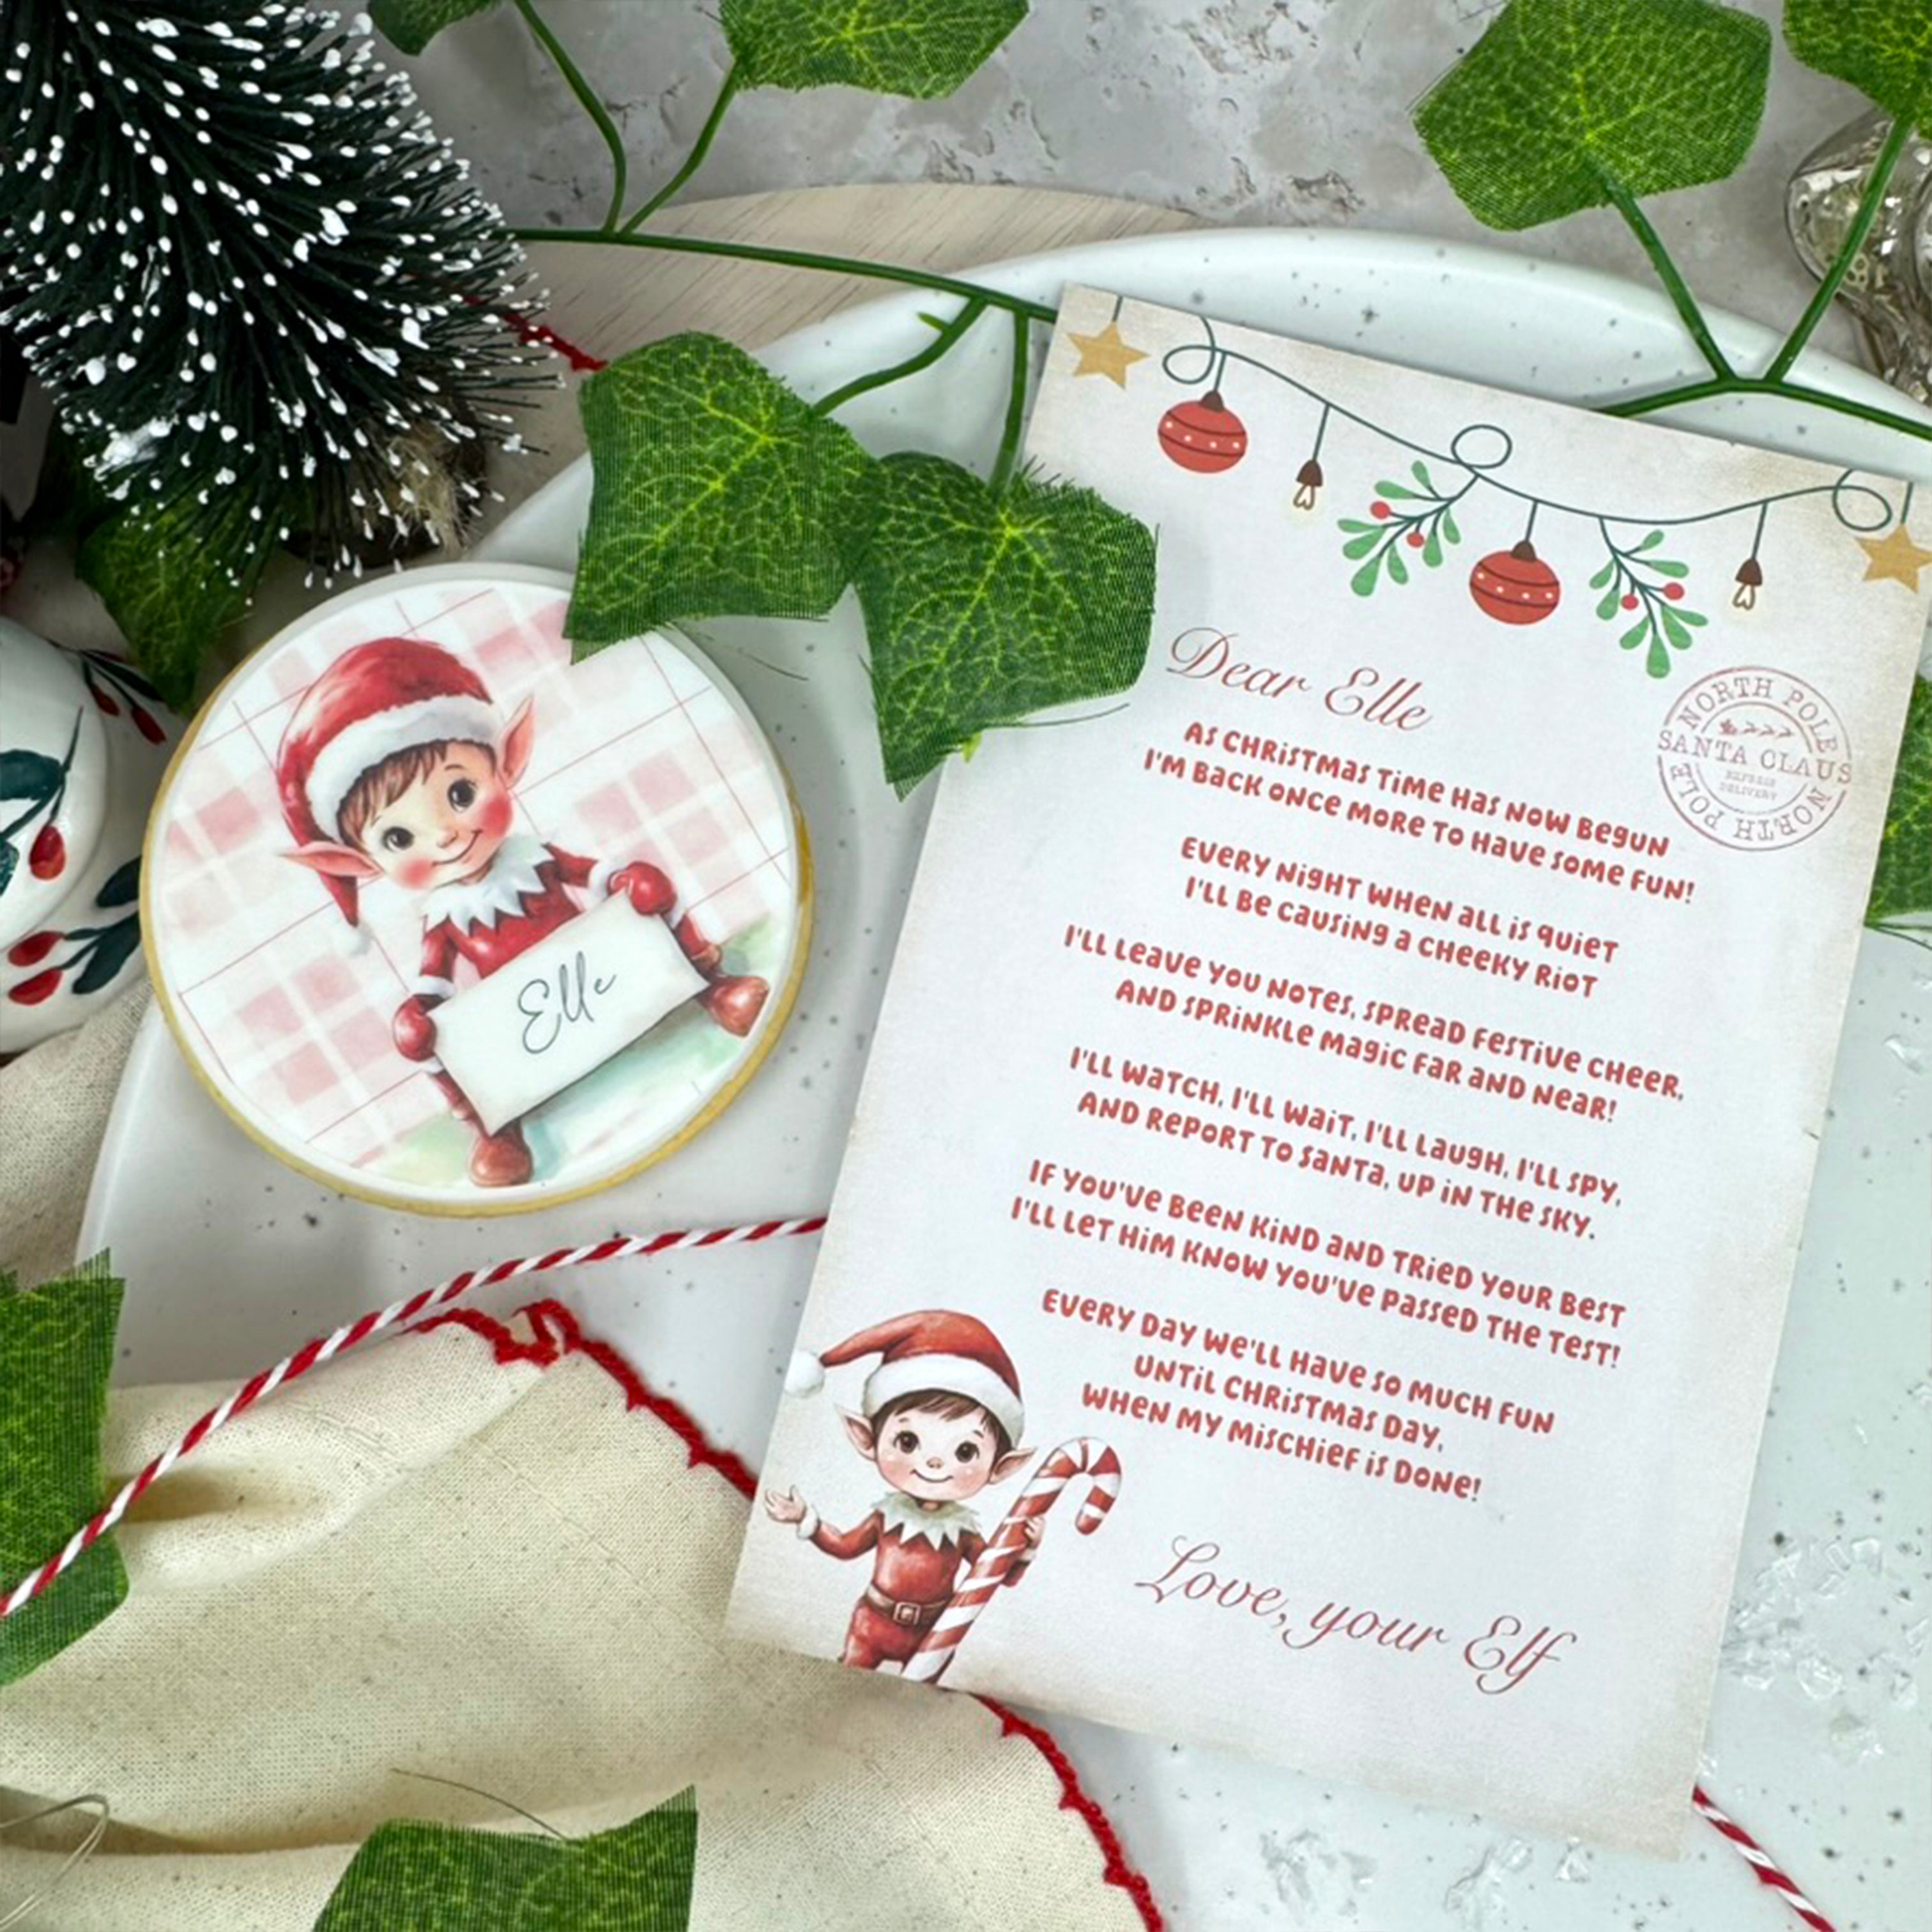 Elle
Dear Elle
NORTH POLE
SANTA CLAUS
EXPRESS
DELIVERY
NORTH POLE
AS CHRISTMAS TIME HAS NOW BEGUN
I'M BACK ONCE MORE TO HAVE SOME FUN!
EVERY NIGHT WHEN ALL IS QUIET
I'LL BE CAUSING A CHEEKY RIOT
I'LL LEAVE YOU NOTES, SPREAD FESTIVE CHEER,
AND SPRINKLE MAGIC FAR AND NEAR!
I'LL WATCH, I'LL WAIT, I'LL LAUGH, I'LL SPY,
AND REPORT TO SANTA, UP IN THE SKY.
IF YOU'VE BEEN KIND AND TRIED YOUR BEST
I'LL LET HIM KNOW YOU'VE PASSED THE TEST!
EVERY DAY WE'LL HAVE SO MUCH FUN
UNTIL CHRISTMAS DAY,
WHEN MY MISCHIEF IS DONE!
Love, your Elf